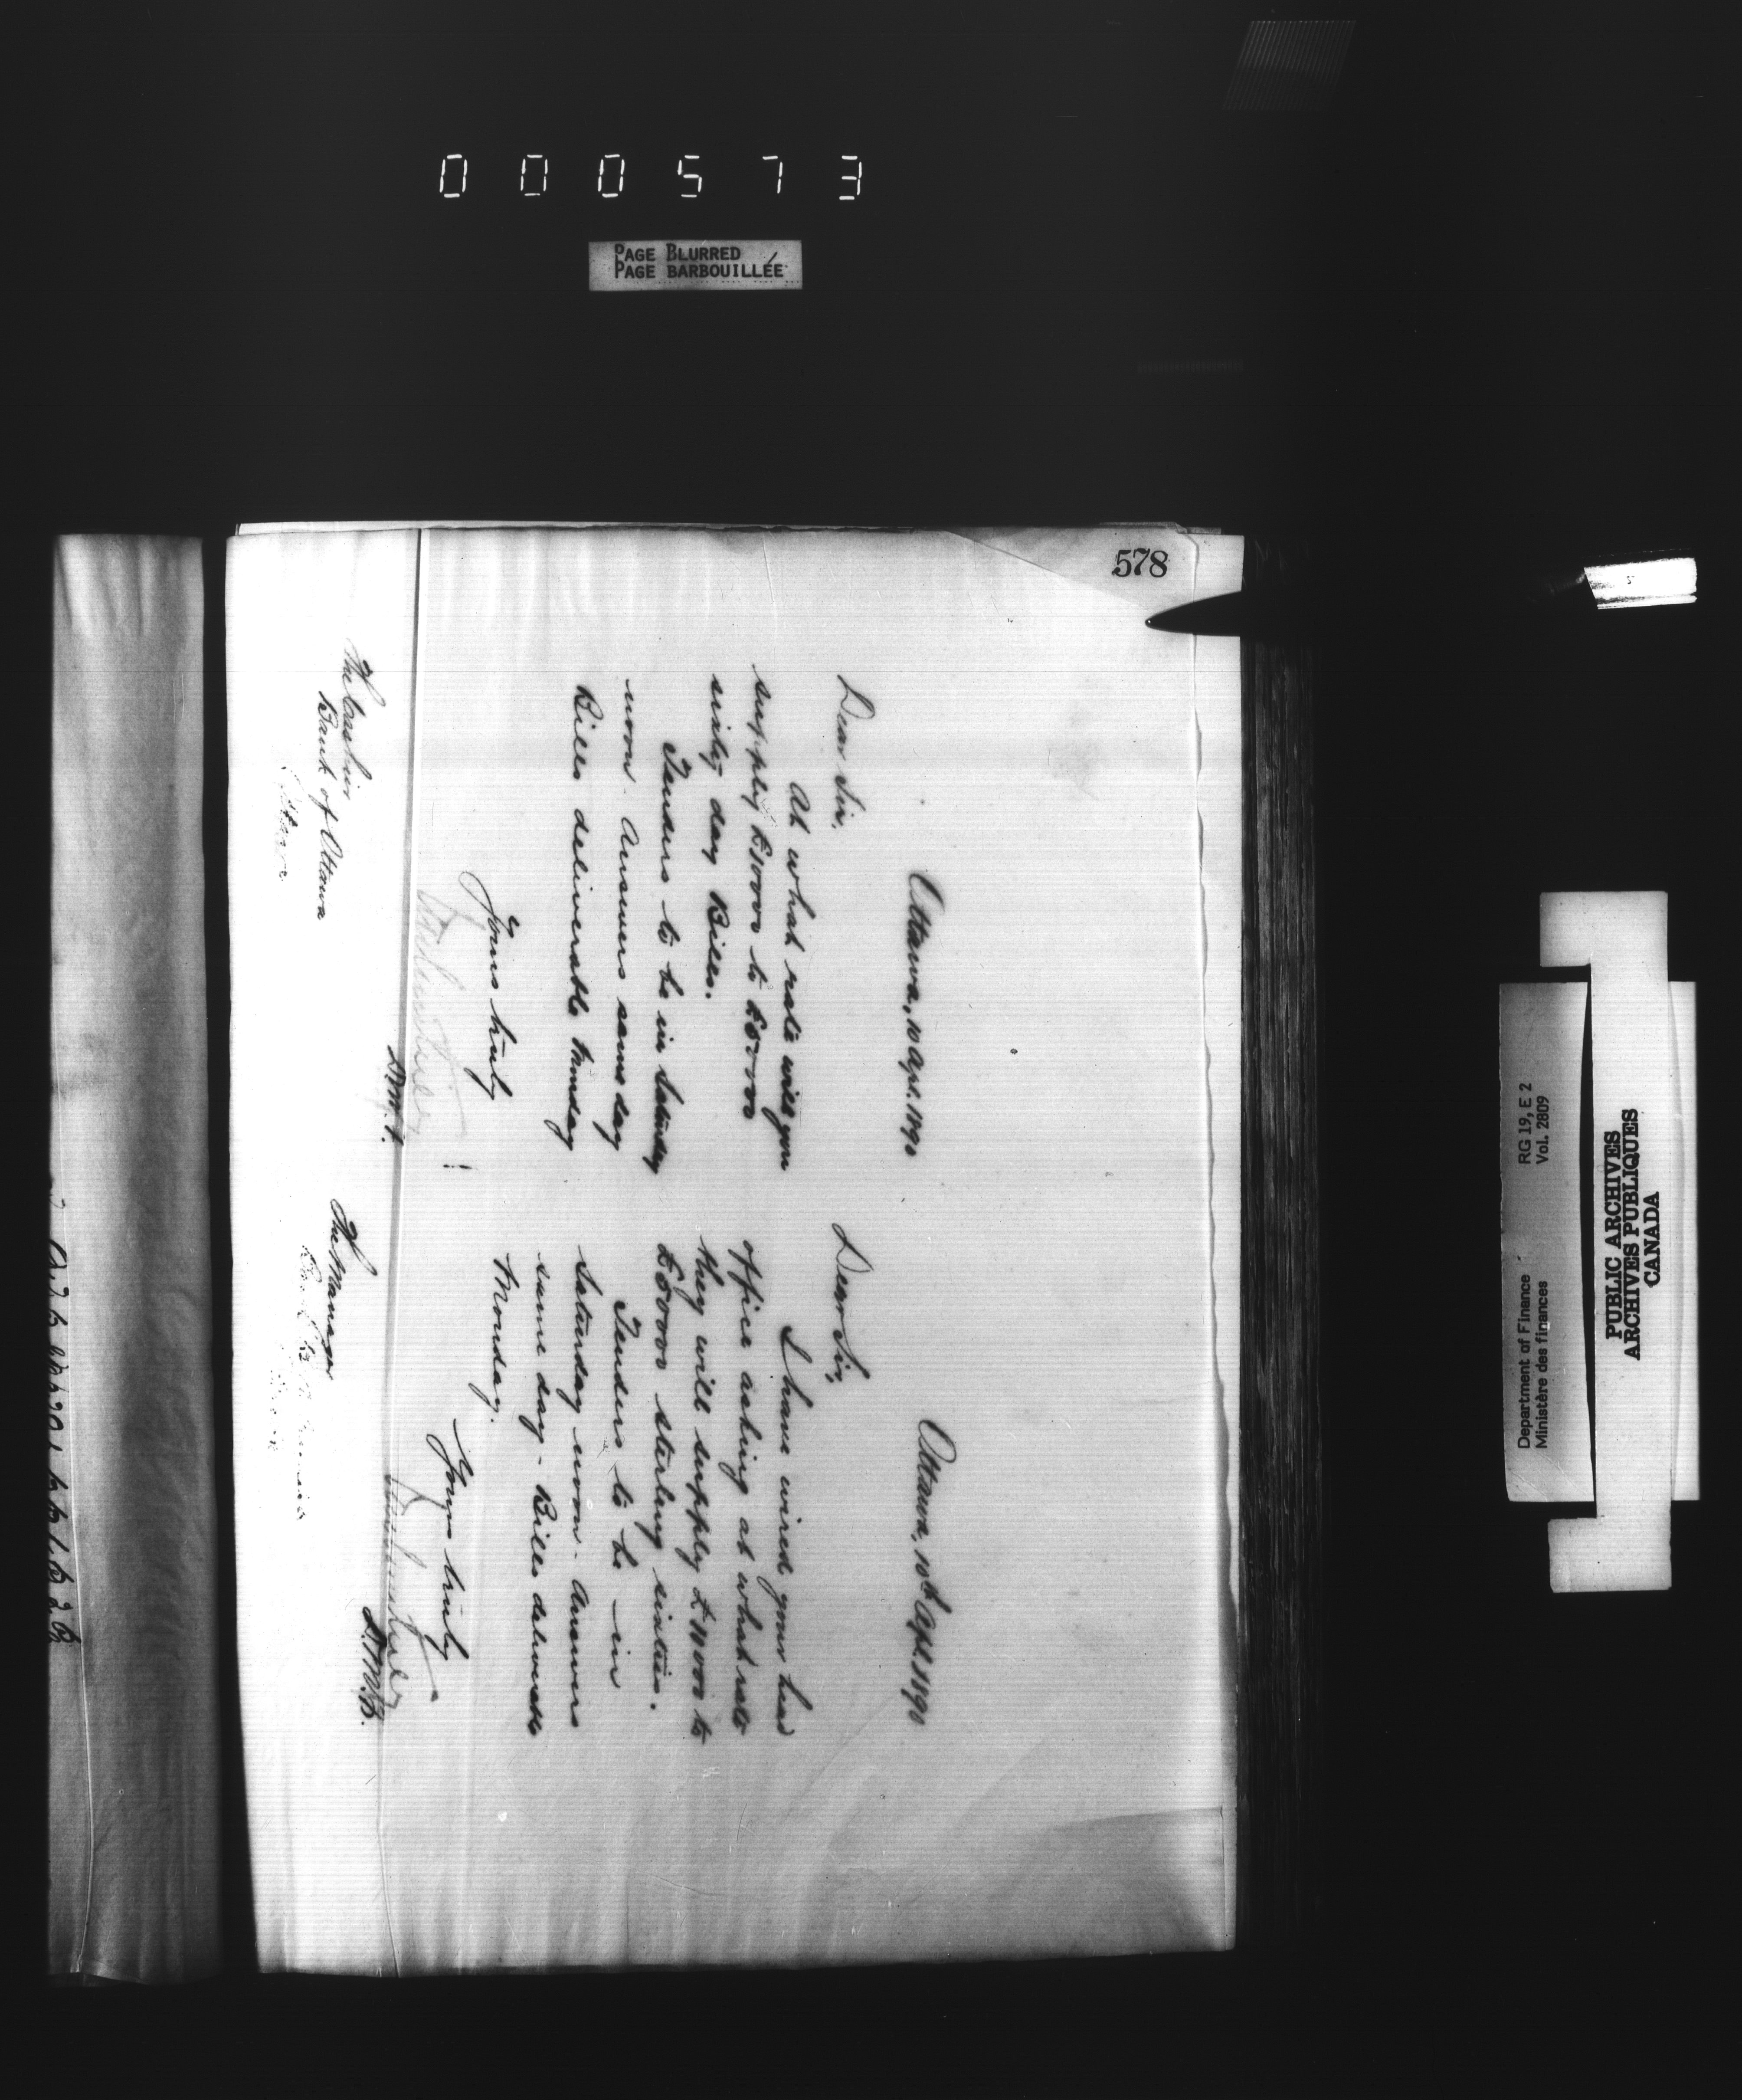 000573
PAGE BLURRED
PAGE BARBOUILLÉE
578
Ottawa, 10 Apl. 1890
Dear Sir,
At what rate will you
supply £10000 to £50000
sixty day Bills.
Tenders to be in Saturday
noon. Answers same day
Bills deliverable Monday
Yours truly
D.M.F.
The Cashier
Bank of Ottawa
Ottawa
Ottawa, 10th Apl. 1890
Dear Sir,
I have wired your head
office asking at what rate
they will supply £10000 to
£50000 sterling sixties.
Tenders to be in
Saturday noon. Answers
same day. Bills deliverable
Monday.
Yours truly
The Manager
Department of Finance RG 19, E 2
Ministère des finances Vol. 2809
PUBLIC ARCHIVES
ARCHIVES PUBLIQUES
CANADA